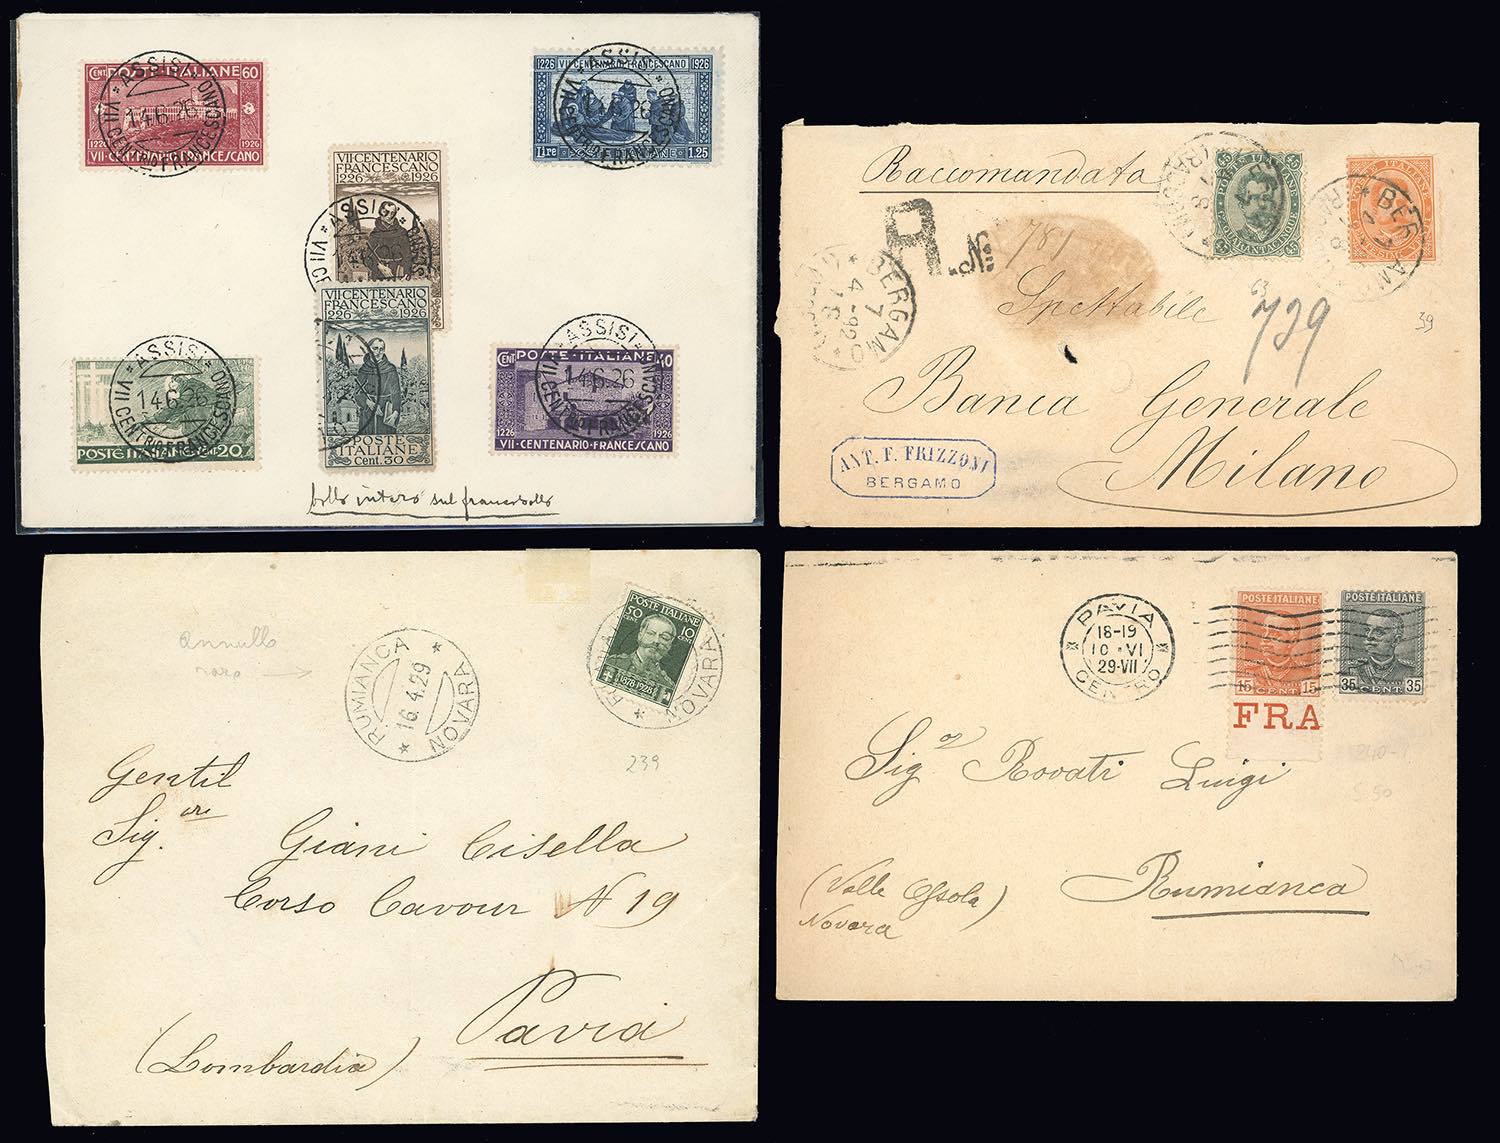 CENT POSTE ITALIANE 60
1226 1926
VII·CENTENARIO·FRANCESCANO
ASSISI
14.6.26
VII CENTRIO FRANCESCANO
1226 VII CENTENARIO FRANCESCANO 1926
Lire 1.25
ASSISI
VII CENTRIO FRANCESCANO
VII CENTENARIO
FRANCESCANO
1226 1926
ASSISI
VII CENTENARIO
FRANCESCANO
1226 1926
POSTE
ITALIANE
Cent. 30
POSTE ITALIANE Cent 20
ASSISI
14.6.26
VII CENTRIO FRANCESCANO
CENT POSTE·ITALIANE 40
1226 1926
VII·CENTENARIO·FRANCESCANO
ASSISI
14.6.26
VII CENTRIO FRANCESCANO
bollo intero sul francobollo
Raccomandata
R. No
781
BERGAMO
7
4-92
45 45
QUARANTACINQUE
BERGAMO
Spettabile
63
729
39
Banca Generale
Milano
ANT. F. FRIZZONI
BERGAMO
annullo
raro
RUMIANCA
16.4.29
NOVARA
POSTE ITALIANE
50 CENT 10 CENT
1878-1928
NOVARA
239
Gentil
Sig.re
Giani Cisella
Corso Cavour N 19
Pavia
(Lombardia)
PAVIA
18-19
10·VI
29·VII
CENTRO
POSTE ITALIANE
15 CENT. 15
FRA
POSTE ITALIANE
35 CENT. 35
Sig.r Rovati Luigi
Rumianca
(Valle Ossola)
Novara